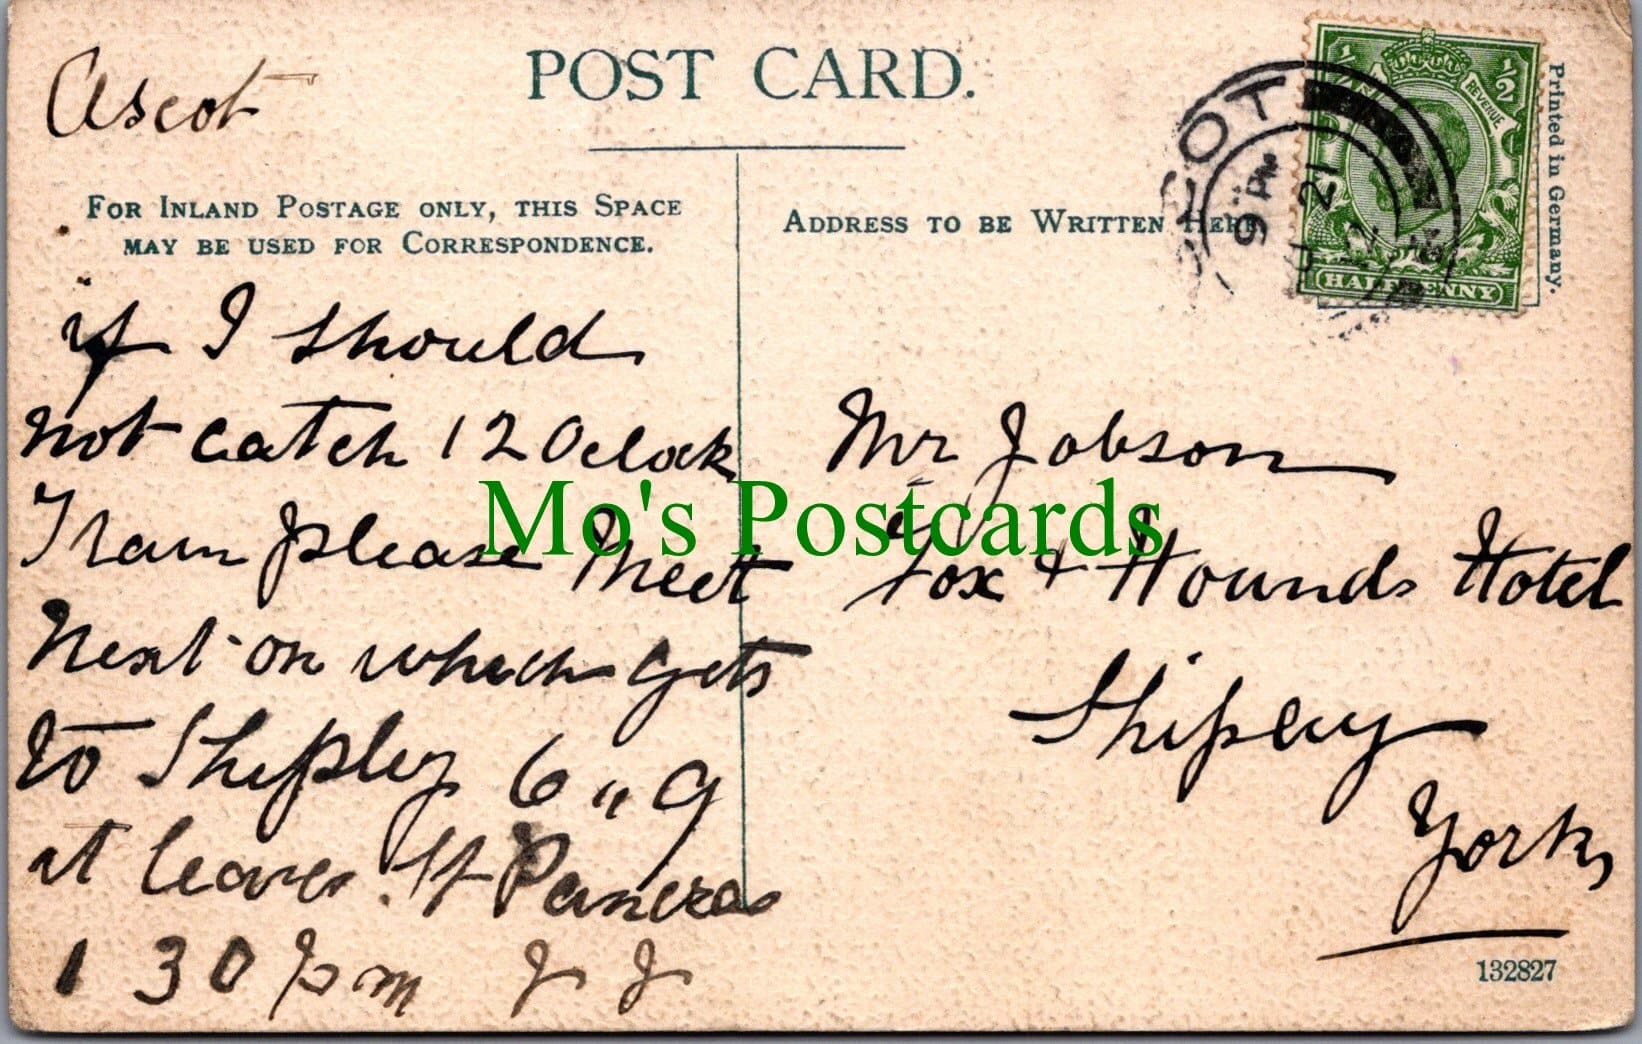 POST CARD.
Ascot
FOR INLAND POSTAGE ONLY, THIS SPACE
MAY BE USED FOR CORRESPONDENCE.
ADDRESS TO BE WRITTEN HERE
Printed in Germany.
REVENUE
HALFPENNY
9 PM
21
if I should
not catch 12 Oclock
Train please Meet
Next on which gets
to Shipley 6 " 9
it leaves St Pancras
1 30 pm J J
Mr Jobson
Fox & Hounds Hotel
Shipley
Yorks
132827
Mo's Postcards